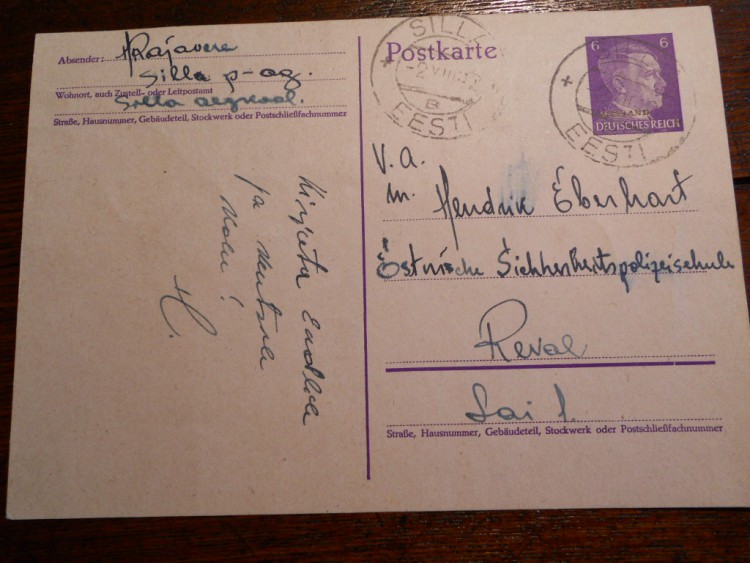 Absender: HRajavere
Silla p-ag.
Wohnort, auch Zustell- oder Leitpostamt
Silla algkool.
Straße, Hausnummer, Gebäudeteil, Stockwerk oder Postschließfachnummer
Postkarte
SILLA
B
EESTI
6 6
OSTLAND
DEUTSCHES REICH
EESTI
V. a.
m. Hendrik Eberhart
Estnische Sichherheitspolizeischule
Reval
Lai 1.
Straße, Hausnummer, Gebäudeteil, Stockwerk oder Postschließfachnummer
Kirjuta
ja
H.